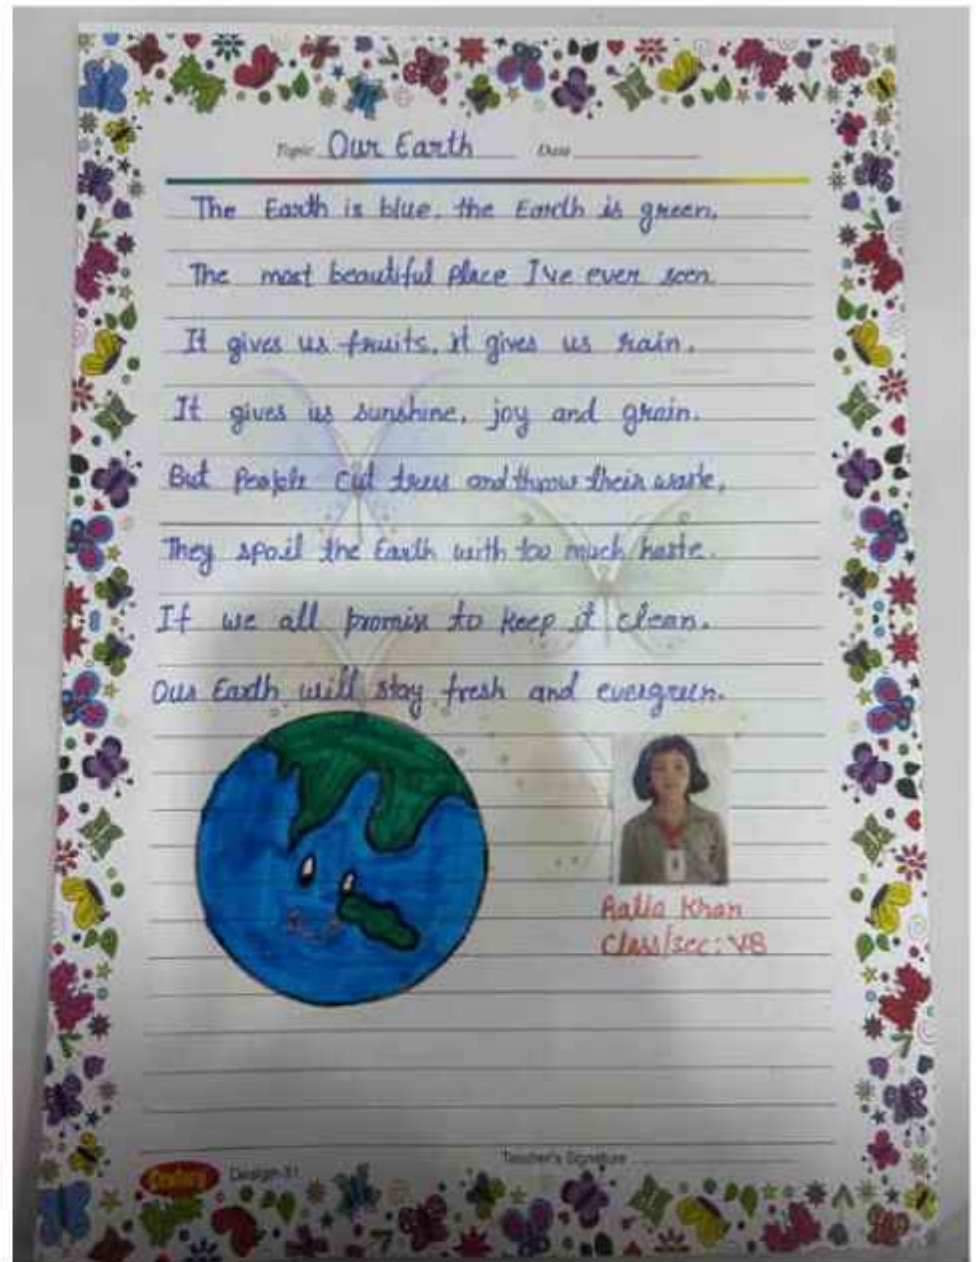 Topic Our Earth Date
The Earth is blue, the Earth is green,
The most beautiful place I've ever seen.
It gives us fruits, it gives us rain.
It gives us sunshine, joy and grain.
But People cut trees and throw their waste,
They spoil the Earth with too much haste.
If we all promise to keep it clean.
Our Earth will stay fresh and evergreen.
Khan
Class/sec: VB
Teacher's Signature
Design-31